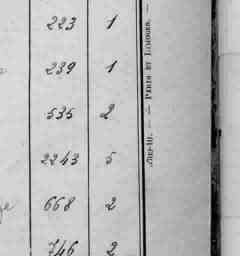 223 1
239 1
535 2
2243 5
668 2
746 2
— PARIS ET LIMOGES. —